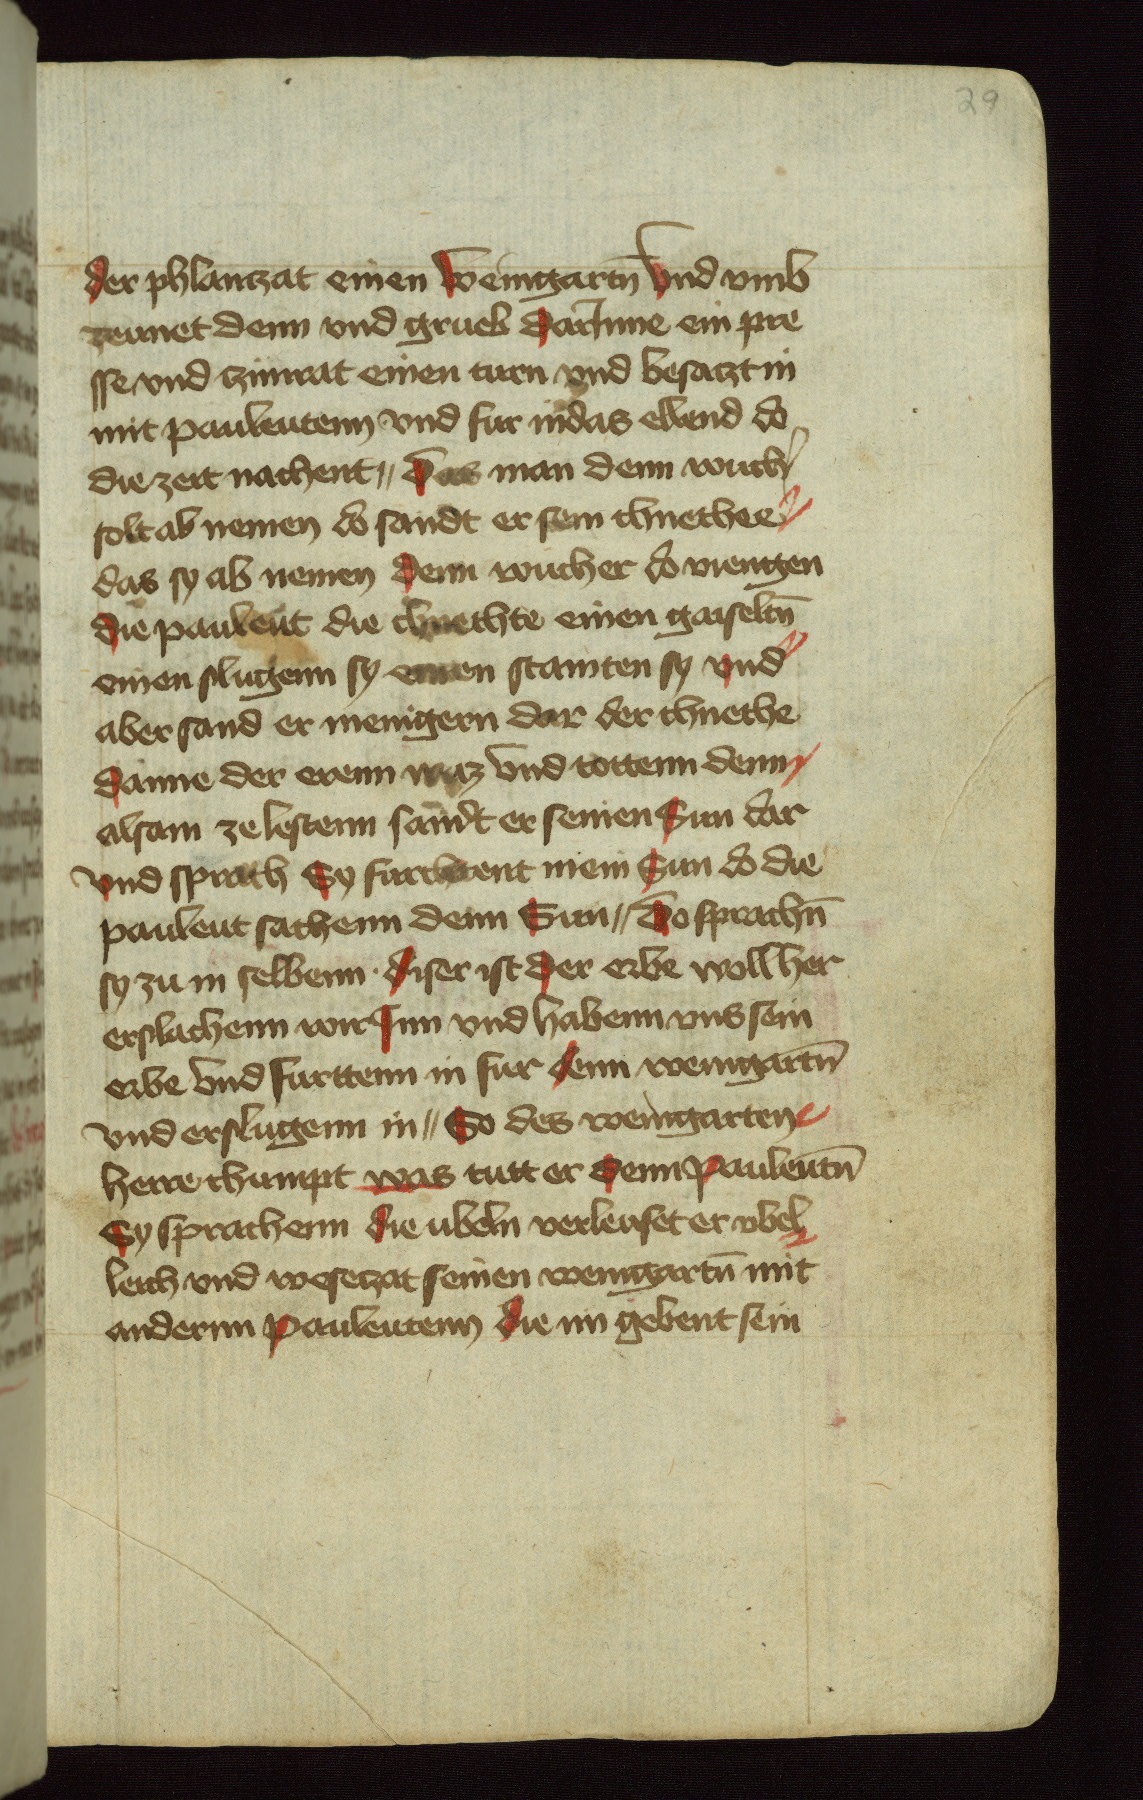 29
der phlanczat einen weingartn̄ vnd vmb
zeunet denn vnd grueb darInne ein pre
sse vnd czimrat einen turn vnd besaczt in
mit pauleutenn vnd fur in das ellend do
die zeit nachent // Das man denn wuch͛
solt ab nemen do sandt er sein chnethee
das sy ab nemen denn wucher do viengen
die pauleut die chnethte einen gaiseltn̄
einen slugenn sy einen stainten sy vnd
aber sand er menigern dar der chnethe
danne der erenn waz vnd tottenn denn
alsam ze lestenn sandt er seinen Sun dar
vnd sprach Sy furchtent mein Sun do die
pauleut sachenn denn Sun // Do sprachn̄
sy zu in selbenn · diser ist der erbe woll her
erslachenn wir Inn vnd habenn vns sein
erbe vnd furttenn in fur denn weingartn̄
vnd erslugenn in // So des weingarten
herre chumpt was tutt er denn Pauleutn̄
Sy sprachenn die ubeln verleuset er vbel
leich vnd weseczat seinen weingartn̄ mit
andernn Pauleutenn die im gebent sein